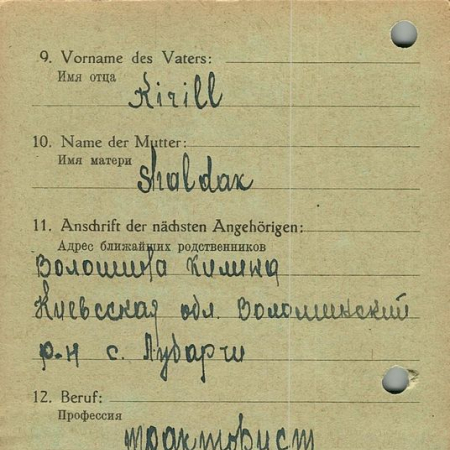 9. Vorname des Vaters:
Имя отца
Kirill
10. Name der Mutter:
Имя матери
Shaldak
11. Anschrift der nächsten Angehörigen:
Адрес ближайших родственников
Волошина Килина
Киевсская обл. Волошинский
р-н с. Лубарчи
12. Beruf:
Профессия
тракторист